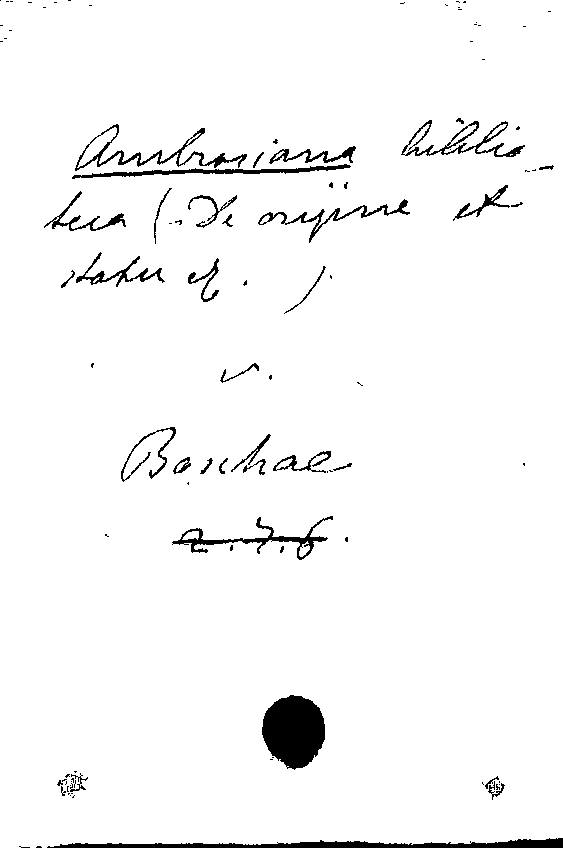 Ambrosiana biblio-
teca (De origine et
statu ej.).
v.
Boschae
2.7.6.